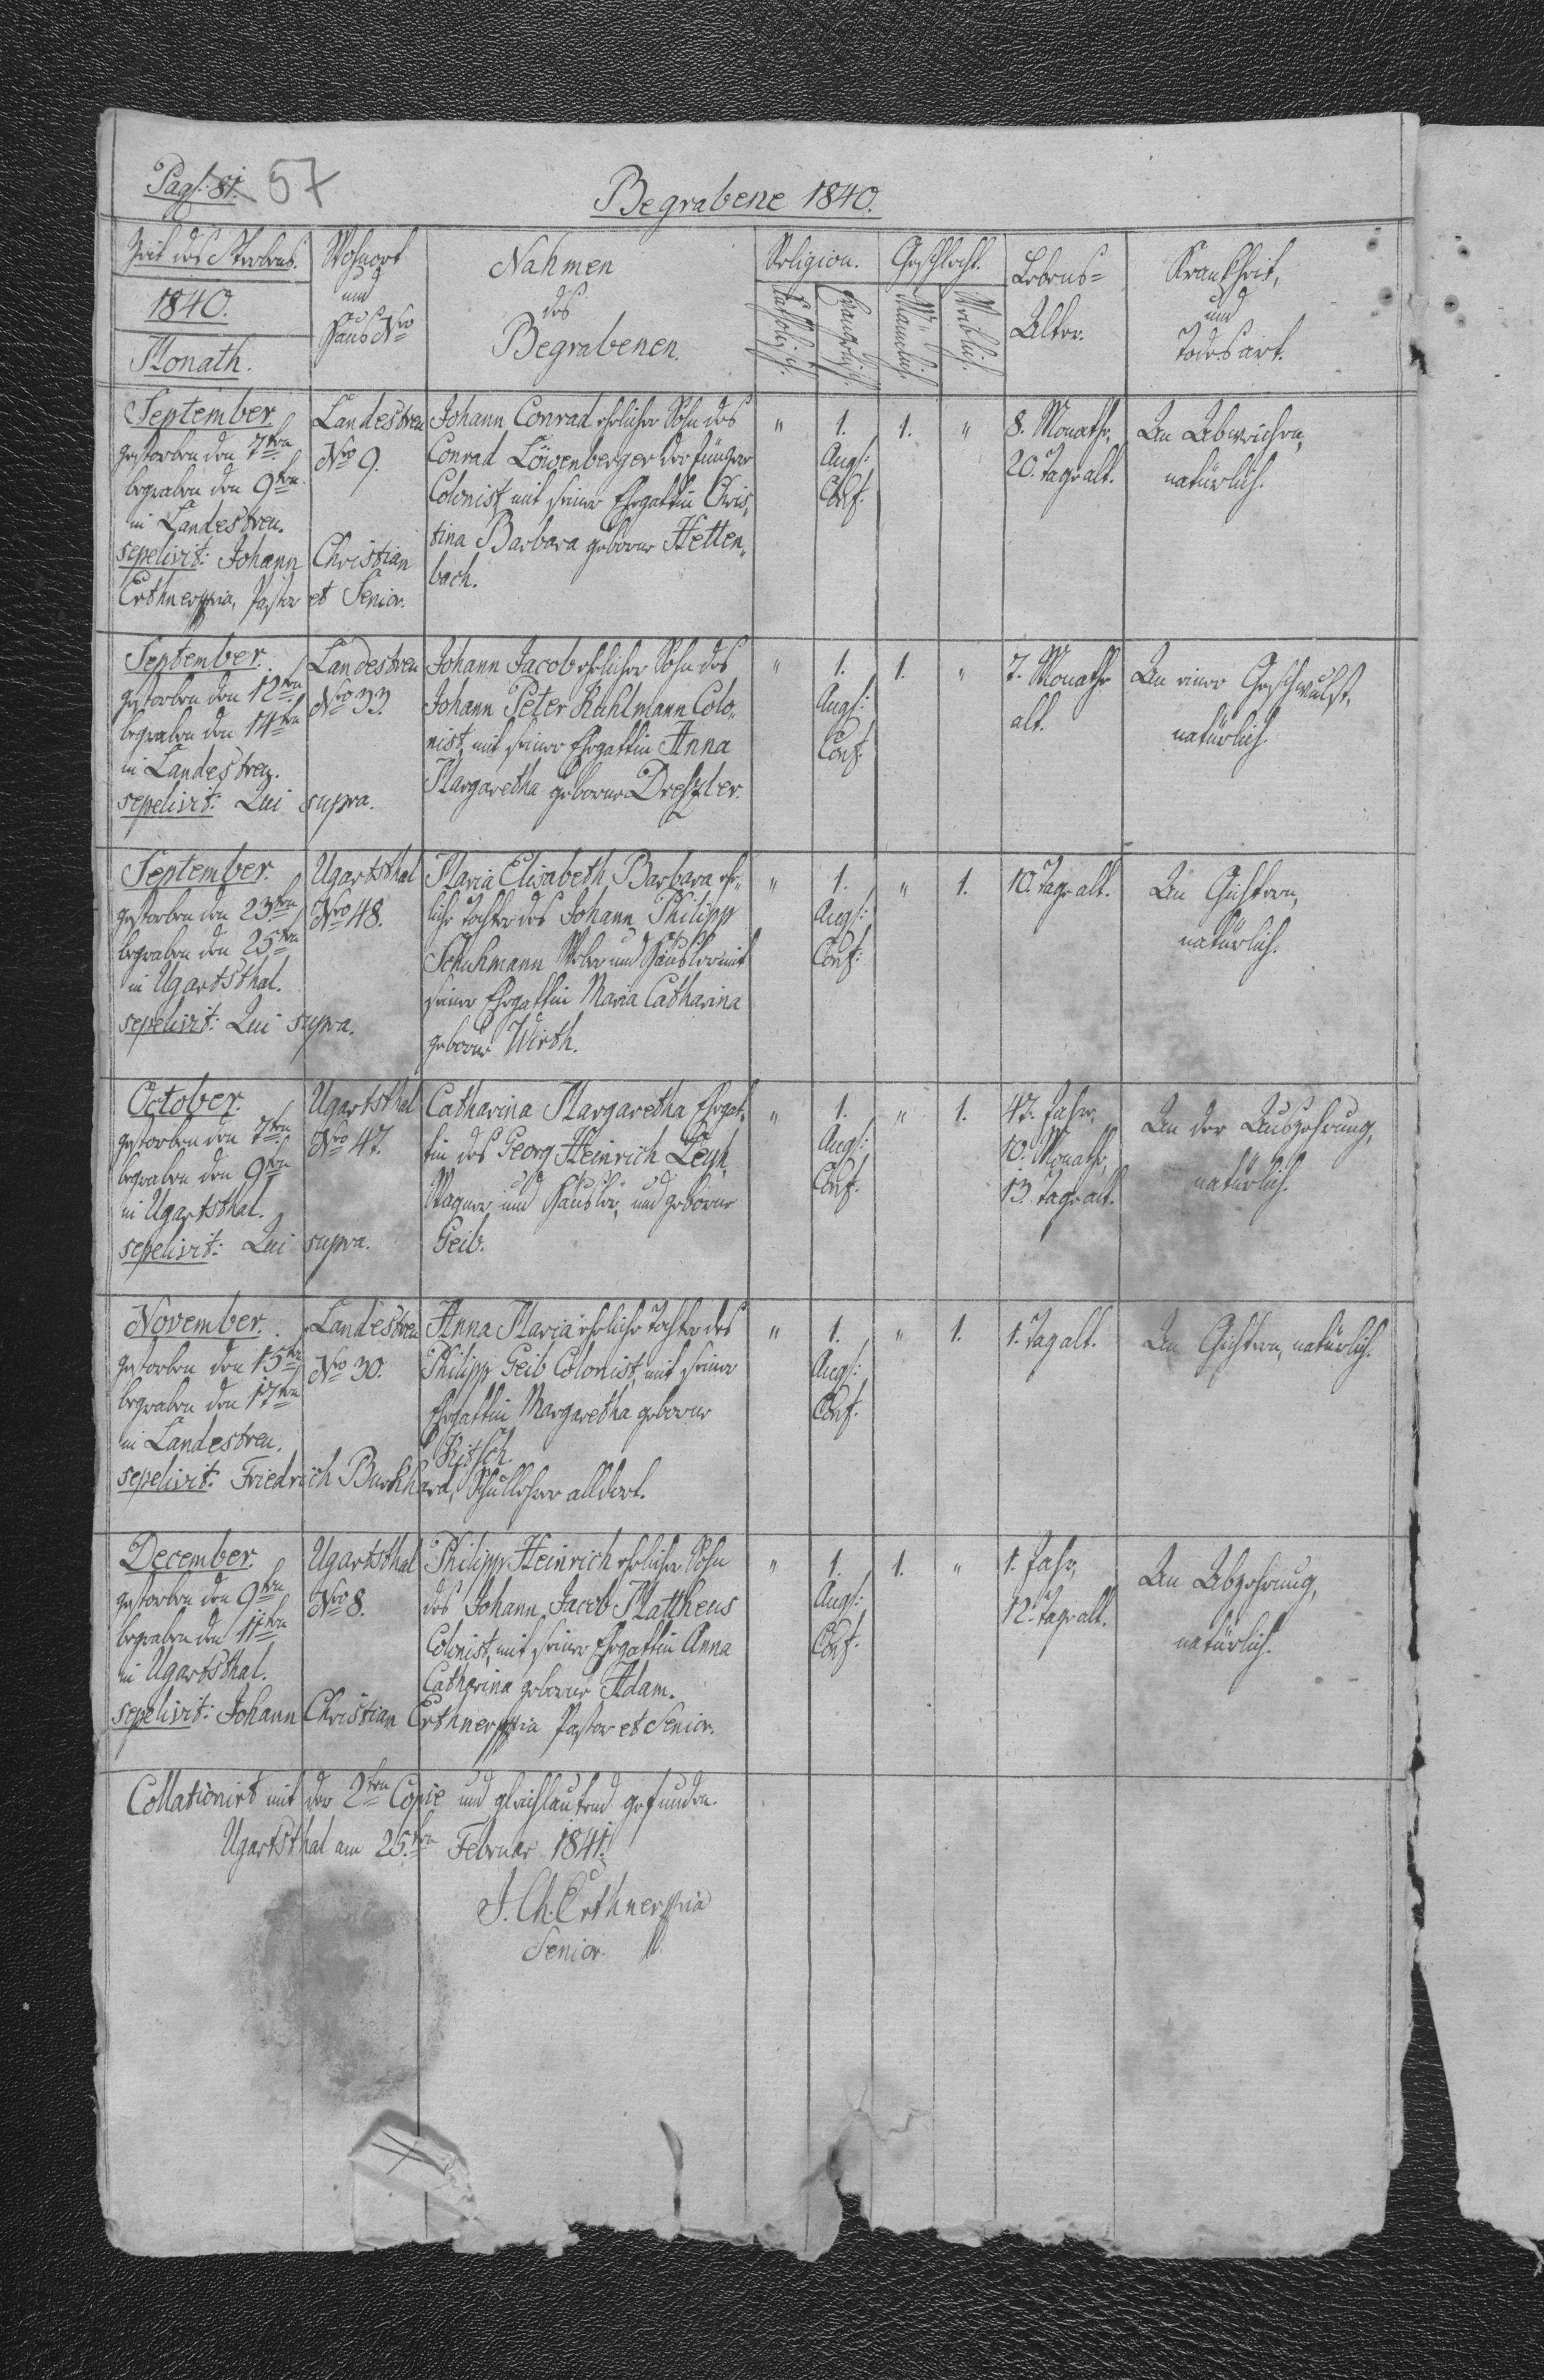 Pag: 81. 57
Begrabene 1840.
Zeit des Sterbens.
1840.
Monath.
Wohnort
und
Haus Nro
Nahmen
des
Begrabenen.
Religion.
Katholisch.
Evangelisch.
Geschlecht.
Männlich.
Weiblich.
Lebens=
Alter.
Krankheit,
und
Todesart.
September.
gestorben den 7ten
begraben den 9ten
in Landestreu.
sepelivit: Johann Christian
Erthner Pastor et Senior.
Landestreu
Nro 9.
Johann Conrad ehelicher Sohn des
Conrad Löwenberger der jünger
Colonist, mit seiner Ehegattin Chris„
tina Barbara geborne Hetten„
bach.
" 1. 1. "
Augs:
Conf.
8. Monathe,
20. Tage alt.
An Abweichen,
natürlich.
September.
gestorben den 12ten
begraben den 14ten
in Landestreu.
sepelivit: Qui supra.
Landestreu
Nro 33.
Johann Jacob ehelicher Sohn des
Johann Peter Kuhlmann Colo„
nist, mit seiner Ehegattin Anna
Margaretha geborne Dreßler.
" 1. 1. "
Augs:
Conf.
7. Monathe
alt.
An einer Geschwulst,
natürlich.
September.
gestorben den 23ten
begraben den 25ten
in Ugartsthal.
sepelivit: Qui supra.
Ugartsthal
Nro 48.
Maria Elisabeth Barbara ehe„
liche Tochter des Johann Philipp
Schuhmann Weber und Häusler mit
seiner Ehegattin Maria Catharina
geborne Wirth.
" 1. " 1.
Augs:
Conf:
10. Tage alt.
An Gichtern,
natürlich.
October.
gestorben den 7ten
begraben den 9ten
in Ugartsthal.
sepelivit: Qui supra.
Ugartsthal
Nro 47.
Catharina Margaretha Ehegat„
tin des Georg Heinrich
Wagner und Häusler, und geborne
Geib.
" 1. " 1.
Augs:
Conf.
47. Jahre,
10. Monathe,
13. Tage alt.
An der Auszehrung,
natürlich.
November.
gestorben den 15ten
begraben den 17ten
in Landestreu.
sepelivit: Friedrich Burkhard, Schullehrer alldort.
Landestreu
Nro 30.
Anna Maria eheliche Tochter des
Philipp Geib Colonist, mit seiner
Ehegattin Margaretha geborne
Kitsch.
" 1. " 1.
Augs:
Conf.
1. Tag alt.
An Gichtern, natürlich.
December.
gestorben den 9ten
begraben den 11ten
in Ugartsthal.
sepelivit: Johann Christian Erthner Pastor et Senior.
Ugartsthal
Nro 8.
Philipp Heinrich ehelicher Sohn
des Johann Jacob Mattheus
Colonist, mit seiner Ehegattin Anna
Catherina geborne Adam.
" 1. 1. "
Augs:
Conf.
1. Jahr,
12. Tage alt.
An Abzehrung,
natürlich.
Collationirt mit der 2ten Copie und gleichlautend gefunden.
Ugartsthal am 25ten Februar 1841.
J. Ch. Erthner
Senior.